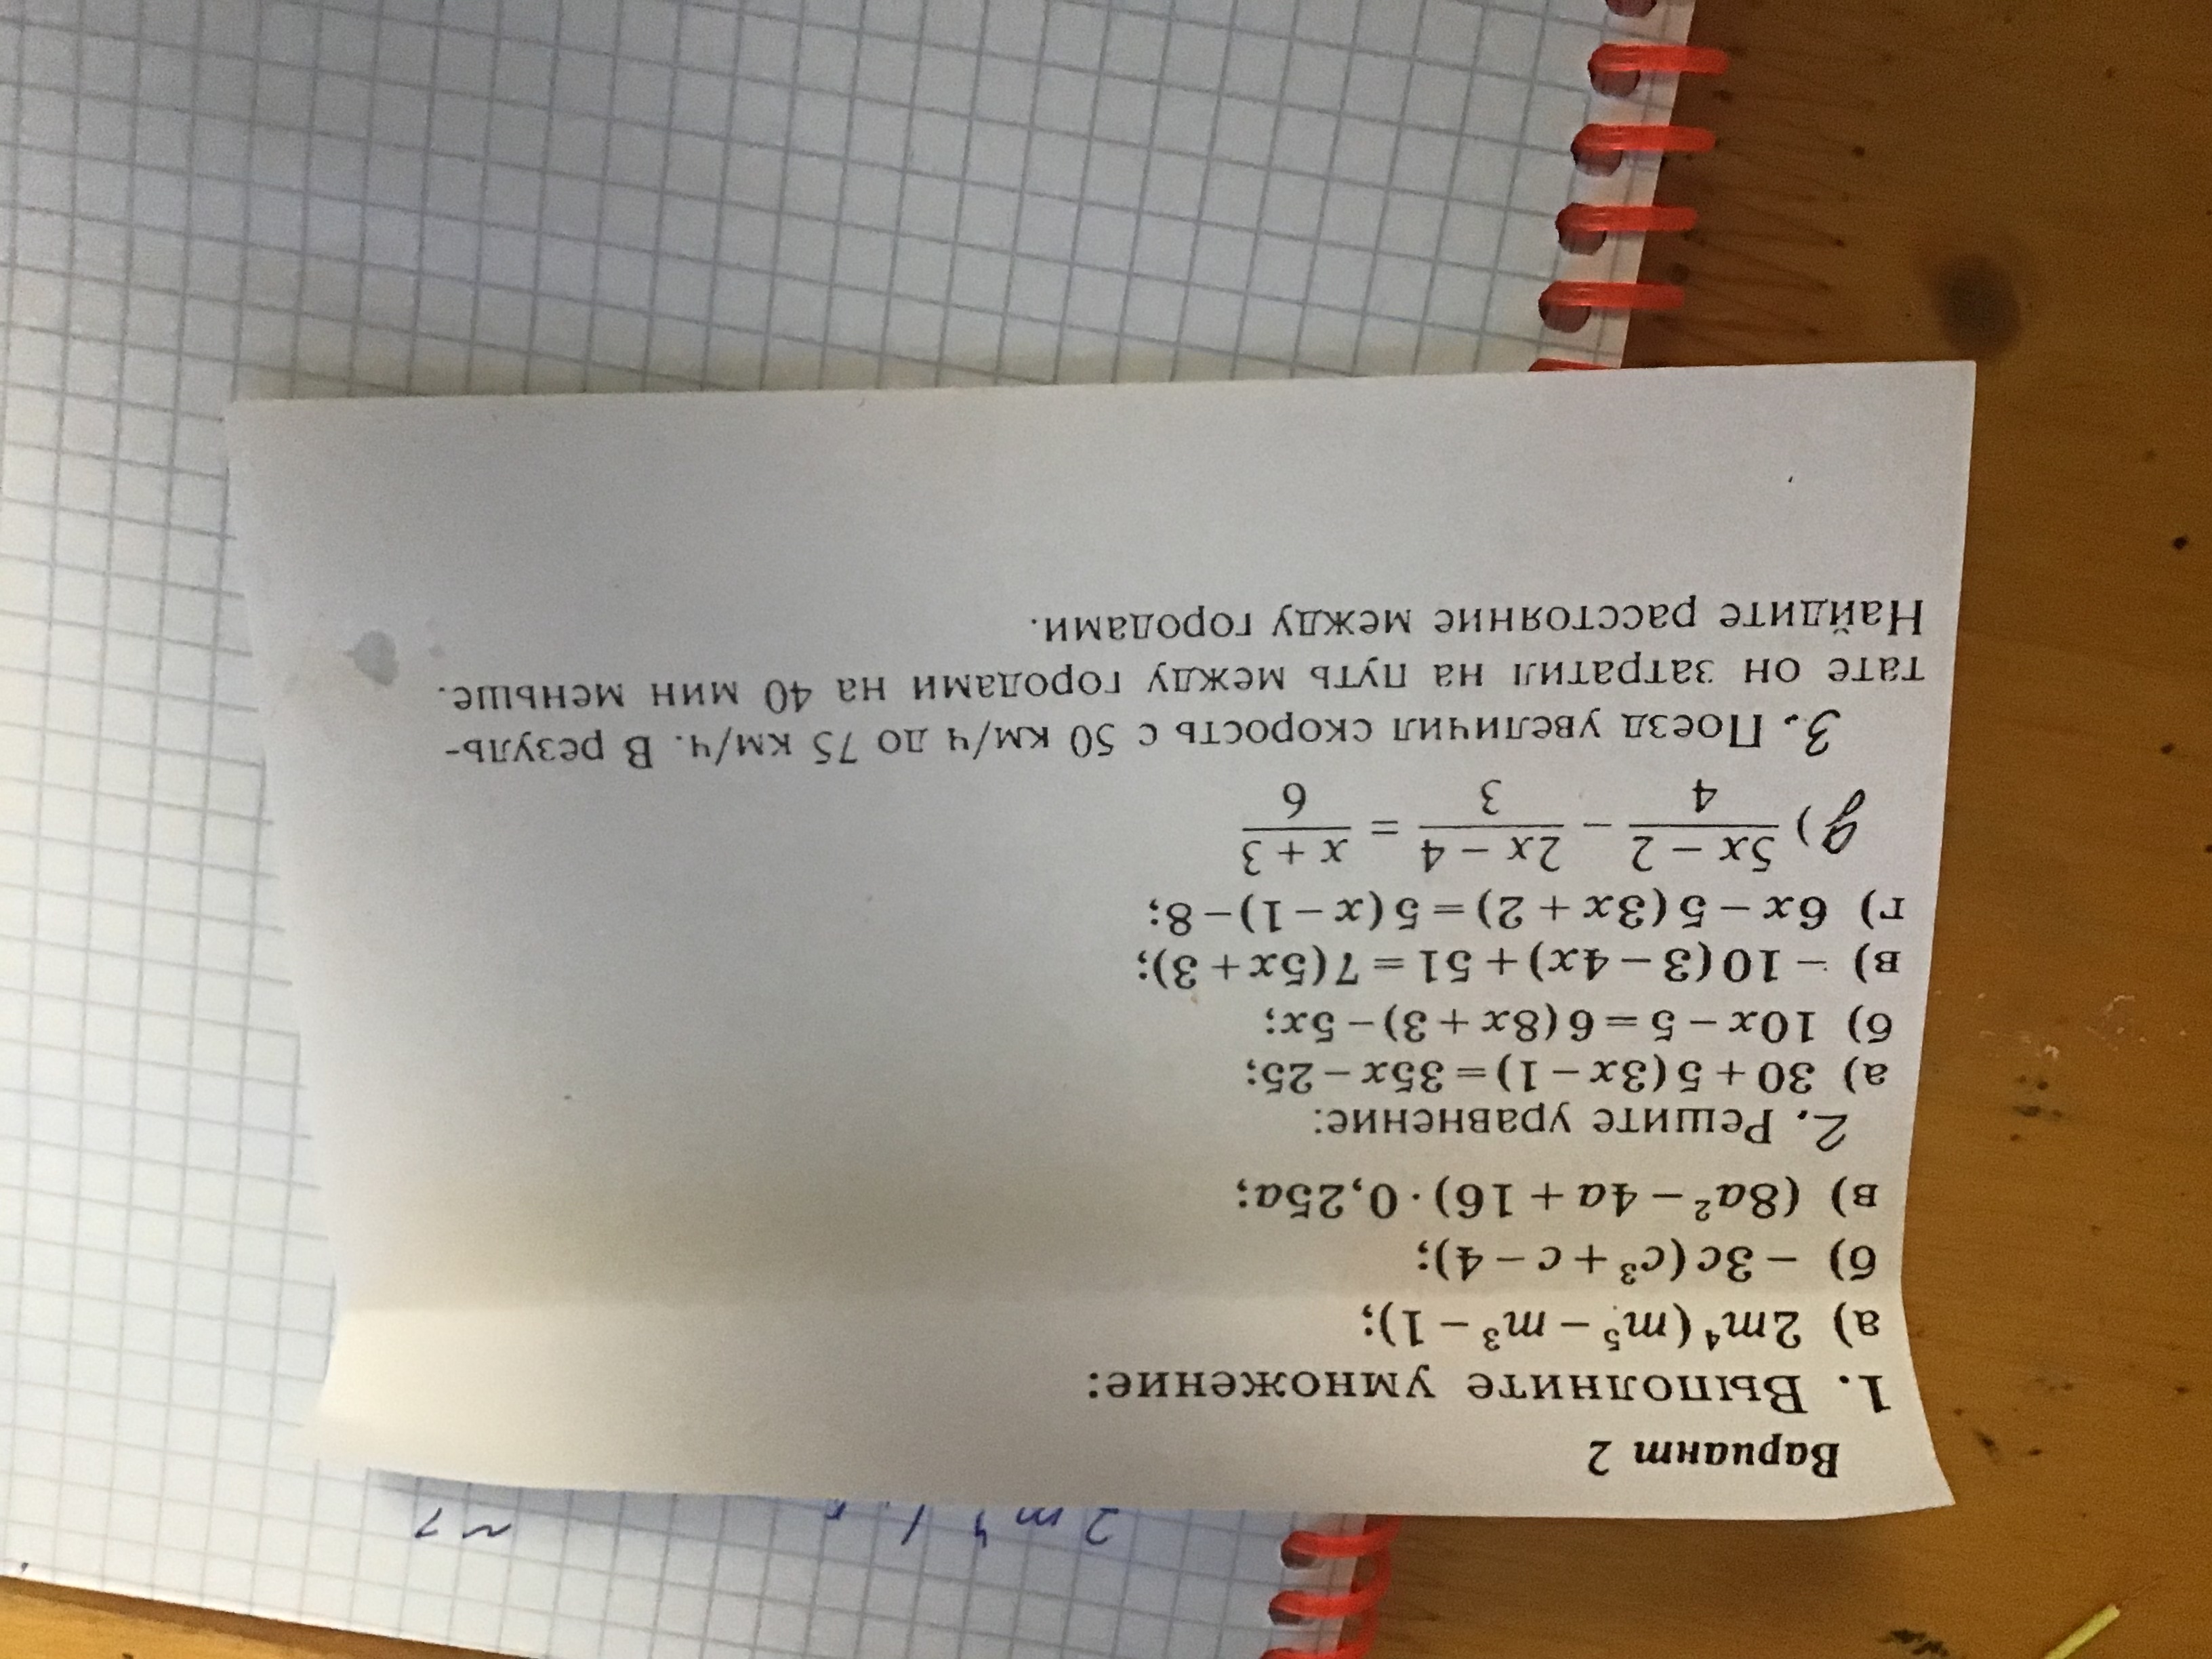 Вариант 2
1. Выполните умножение:
а) 2m⁴(m⁵ – m³ – 1);
б) – 3c(c³ + c – 4);
в) (8a² – 4a + 16) · 0,25a;
2. Решите уравнение:
а) 30 + 5(3x – 1) = 35x – 25;
б) 10x – 5 = 6(8x + 3) – 5x;
в) – 10(3 – 4x) + 51 = 7(5x + 3);
г) 6x – 5(3x + 2) = 5(x – 1) – 8;
д) (5x – 2)/4 – (2x – 4)/3 = (x + 3)/6
3. Поезд увеличил скорость с 50 км/ч до 75 км/ч. В резуль-
тате он затратил на путь между городами на 40 мин меньше.
Найдите расстояние между городами.
2m⁴(